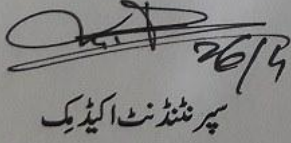 26/4
سپرنٹنڈنٹ اکیڈمک